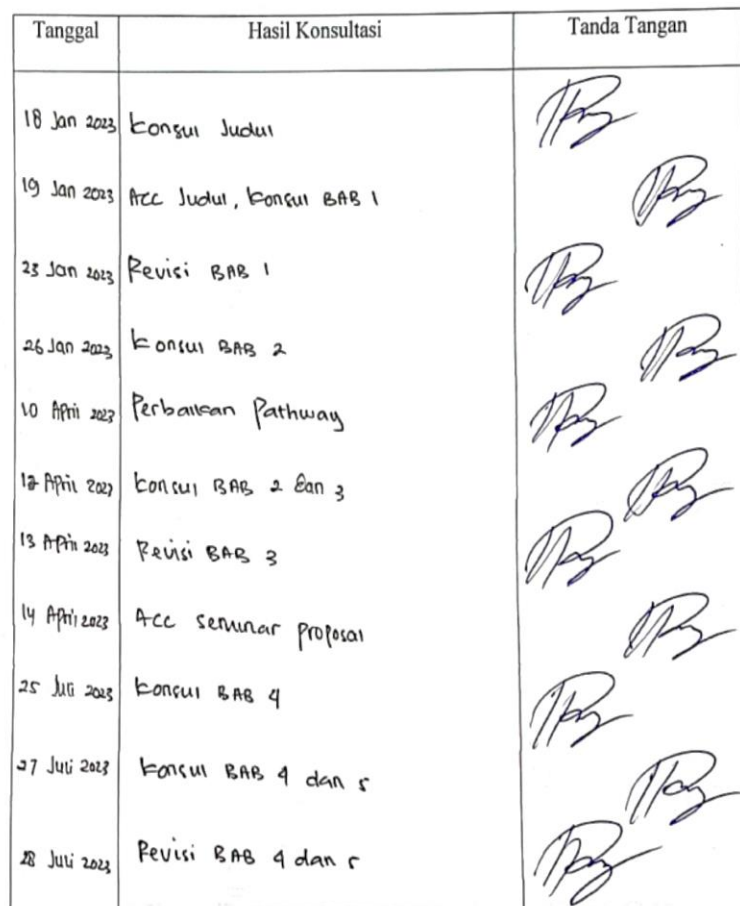 Tanggal Hasil Konsultasi Tanda Tangan
18 Jan 2023 Konsul Judul
19 Jan 2023 Acc Judul, Konsul BAB 1
23 Jan 2023 Revisi BAB 1
26 Jan 2023 Konsul BAB 2
10 April 2023 Perbaikan Pathway
12 April 2023 Konsul BAB 2 dan 3
13 April 2023 Revisi BAB 3
14 April 2023 Acc seminar proposal
25 Juli 2023 Konsul BAB 4
27 Juli 2023 Konsul BAB 4 dan 5
28 Juli 2023 Revisi BAB 4 dan 5